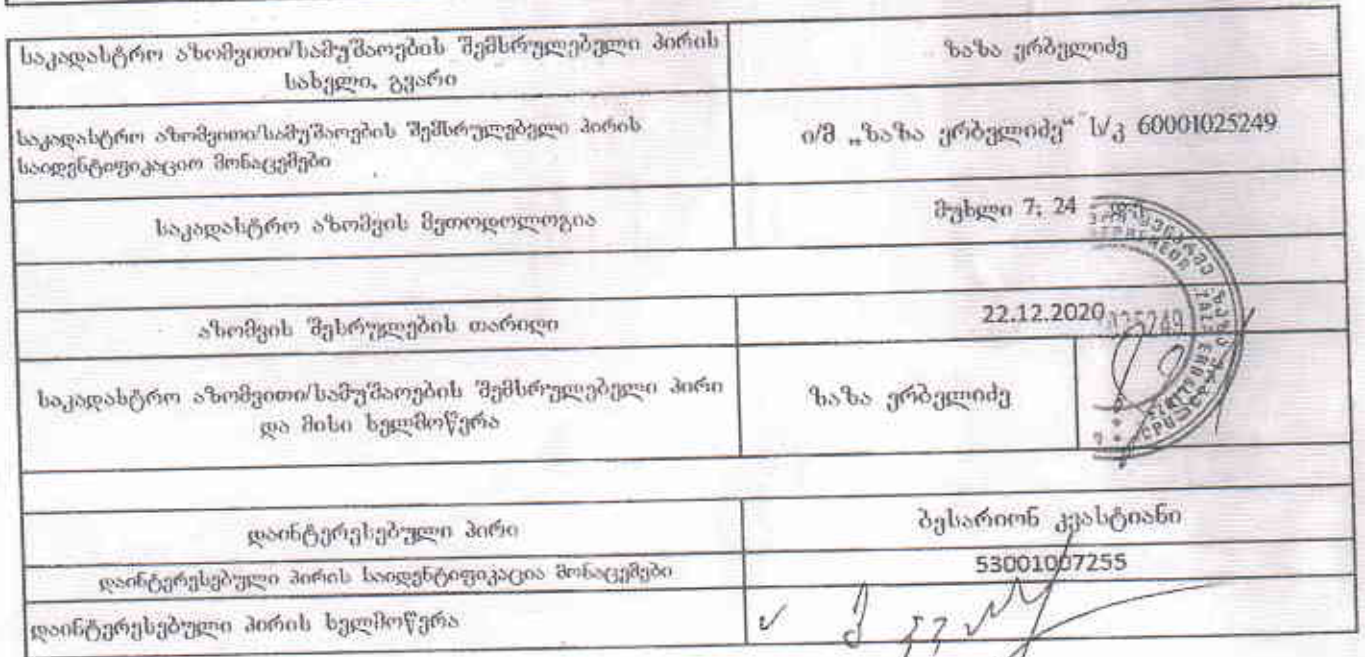 საკადასტრო აზომვითი/სამუშაოების შემსრულებელი პირის
სახელი, გვარი
ზაზა ერბელიძე
საკადასტრო აზომვითი/სამუშაოების შემსრულებელი პირის
საიდენტიფიკაციო მონაცემები
ი/მ „ზაზა ერბელიძე“ ს/კ 60001025249
საკადასტრო აზომვის მეთოდოლოგია
მუხლი 7; 24
აზომვის შესრულების თარიღი
22.12.2020
საკადასტრო აზომვითი/სამუშაოების შემსრულებელი პირი
და მისი ხელმოწერა
ზაზა ერბელიძე
დაინტერესებული პირი
ბესარიონ კვასტიანი
დაინტერესებული პირის საიდენტიფიკაცია მონაცემები
53001007255
დაინტერესებული პირის ხელმოწერა